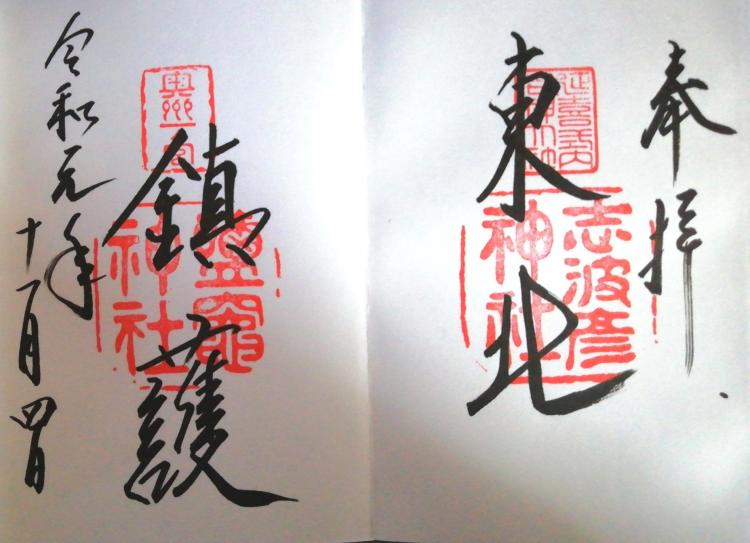 奉拝
東北
延喜式内
志波彦
神社
鎮護
奥州一宮
鹽竈
神社
令和元年
十一月四日